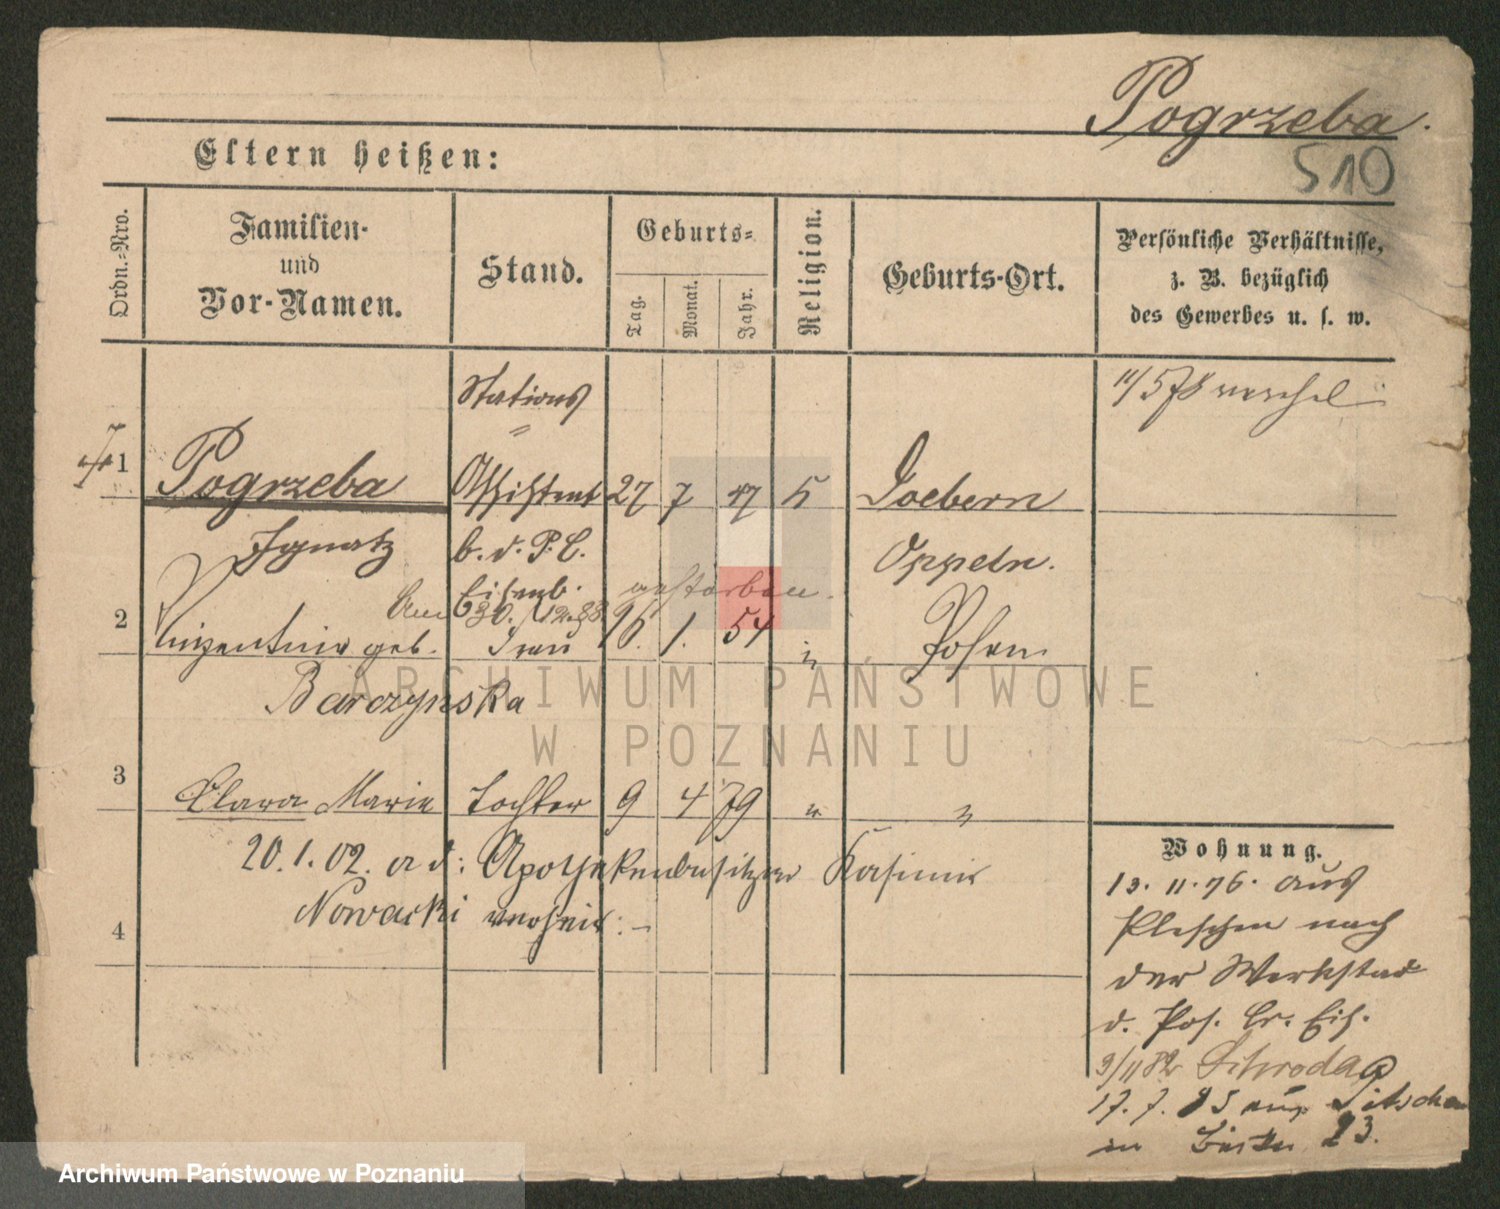 Pogrzeba.
510
Eltern heißen:
Ordn.-Nro.
Familien- und Vor-Namen.
Stand.
Geburts-
Tag.
Monat.
Jahr.
Religion.
Geburts-Ort.
Persönliche Verhältnisse,
z. B. bezüglich
des Gewerbes u. s. w.
Stations
11/5 78
1 Pogrzeba Assistent 27 7 47 Loebern
Ignatz b. d. P. C. Oppeln.
Eisenb. gestorben.
Am 30. 12. 88.
2 geb. Frau 16. 1. 54 " Posen
Barczynska
ARCHIWUM PAŃSTWOWE
W POZNANIU
3 Clara Marie Tochter 9 4 79 " "
20. 1. 02. a d: Apothekenbesitzer Kasimir
Nowacki verheir: –
4
Wohnung.
13. 11. 76. aus
Pleschen nach
der Werkstad
d. Pos. Cr. Eis.
9/11 82 Schroda
17. 7. 85 aus Pitschen
in 23.
Archiwum Państwowe w Poznaniu